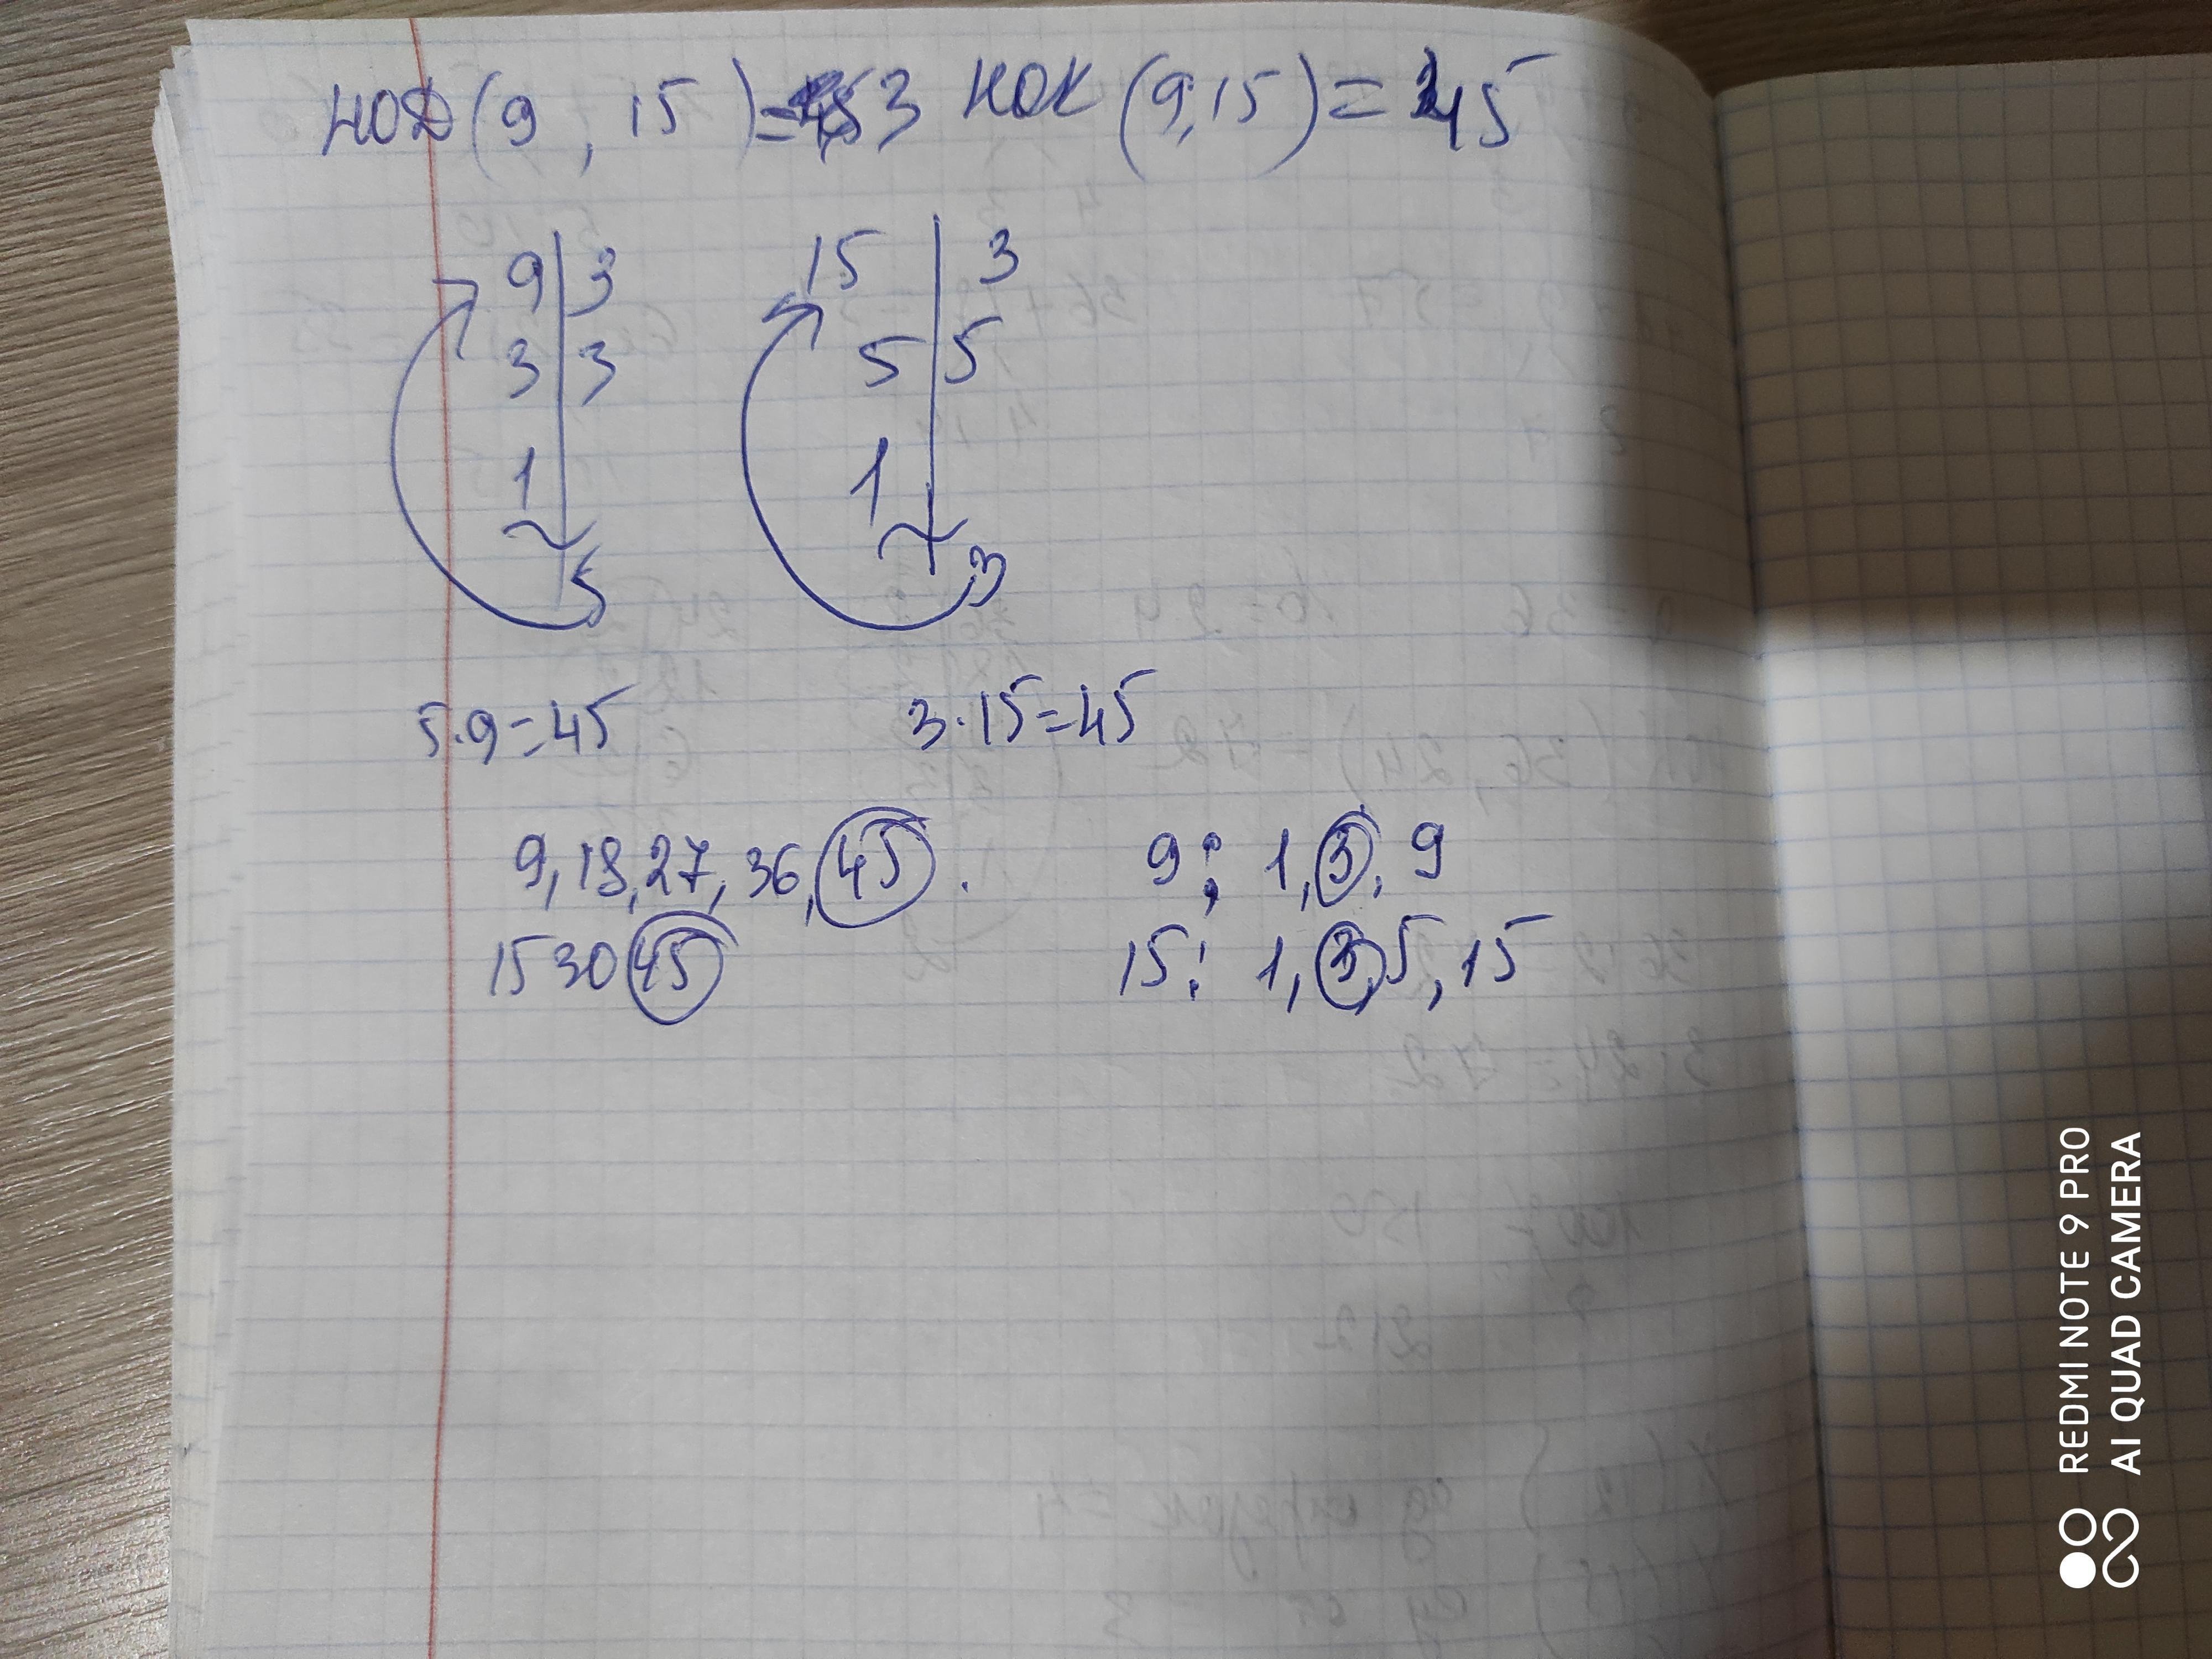 НОД (9, 15) = 3 НОК (9,15) = 45
9 | 3 15 | 3
3 | 3 5 | 5
1 1
5 3
5·9=45 3·15=45
9,18,27,36,45. 9: 1,3,9
15 30 45 15: 1,3,5,15
REDMI NOTE 9 PRO
AI QUAD CAMERA